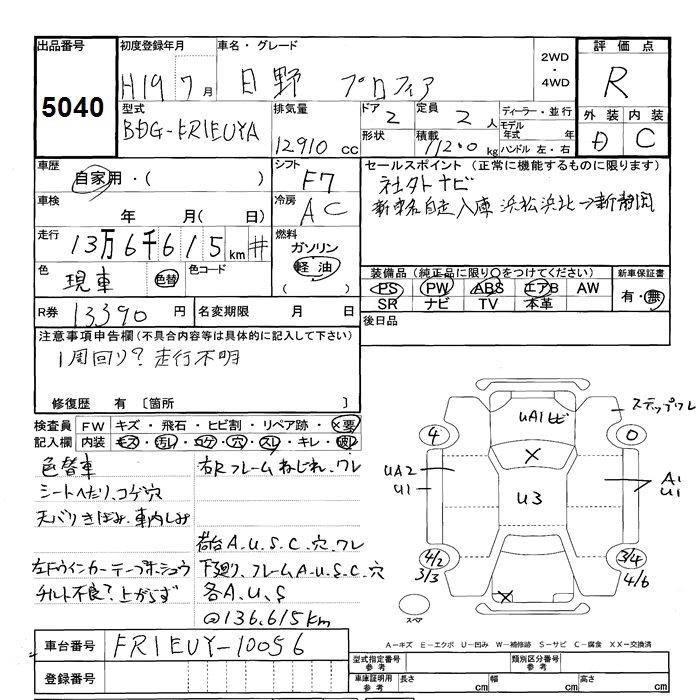 出品番号 初度登録年月 車名・グレード 2WD・4WD 評価点
5040 H19 7月 日野 プロフィア R
型式 排気量 ドア 2 定員 2人 ディーラー・並行 外装 内装
BDG-FR1EUYA 12910cc 形状 積載 11200kg モデル年式 年 D C
ハンドル 左・右
車歴 自家用・( ) シフト F7 セールスポイント(正常に機能するものに限ります)
社外ナビ
車検 年 月( 日) 冷房 AC
新車名自走入庫 浜松浜北→新静岡
走行 13万6千615km # 燃料 ガソリン 軽油 ( )
色 現車 色替 色コード
装備品(純正品に限り○をつけてください) 新車保証書
PS PW ABS エアB AW 有・無
SR ナビ TV 本革
R券 13390円 名変期限 月 日 後日品
注意事項申告欄(不具合内容等は具体的に記入して下さい)
1周回り?走行不明
修復歴 有〔箇所 〕
検査員記入欄 FW キズ・飛石・ヒビ割・リペア跡・×要
内装 キズ・汚れ・コゲ・穴・スレ・キレ・破レ
色替車 右Rフレームねじれ、ワレ
シートへたり、コゲ穴
天バリきばみ、車内しみ
荷台A.U.S.C.穴.ワレ
左Fウインカーテープホシュウ 下廻り、フレームA.U.S.C.穴
チルト不良?上がらず 各A.U.S
@136.615km
ステップワレ
UA1ヒビ
4 0
X
UA2 U1 U3 A1 U1
4/2 3/3 3/4 4/6
X
スペア
A-キズ E-エクボ U-凹み W-補修跡 S-サビ C-腐食 XX-交換済
車台番号 FR1EUY-10056
登録番号
型式指定番号 参考 類別区分番号 参考
車庫証明用 参考 長さ cm 幅 cm 高さ cm